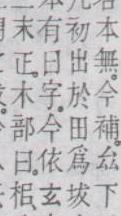 本無。今補。玆下
初出於田爲坺
有日字。今依玄
末正。木部曰。枱